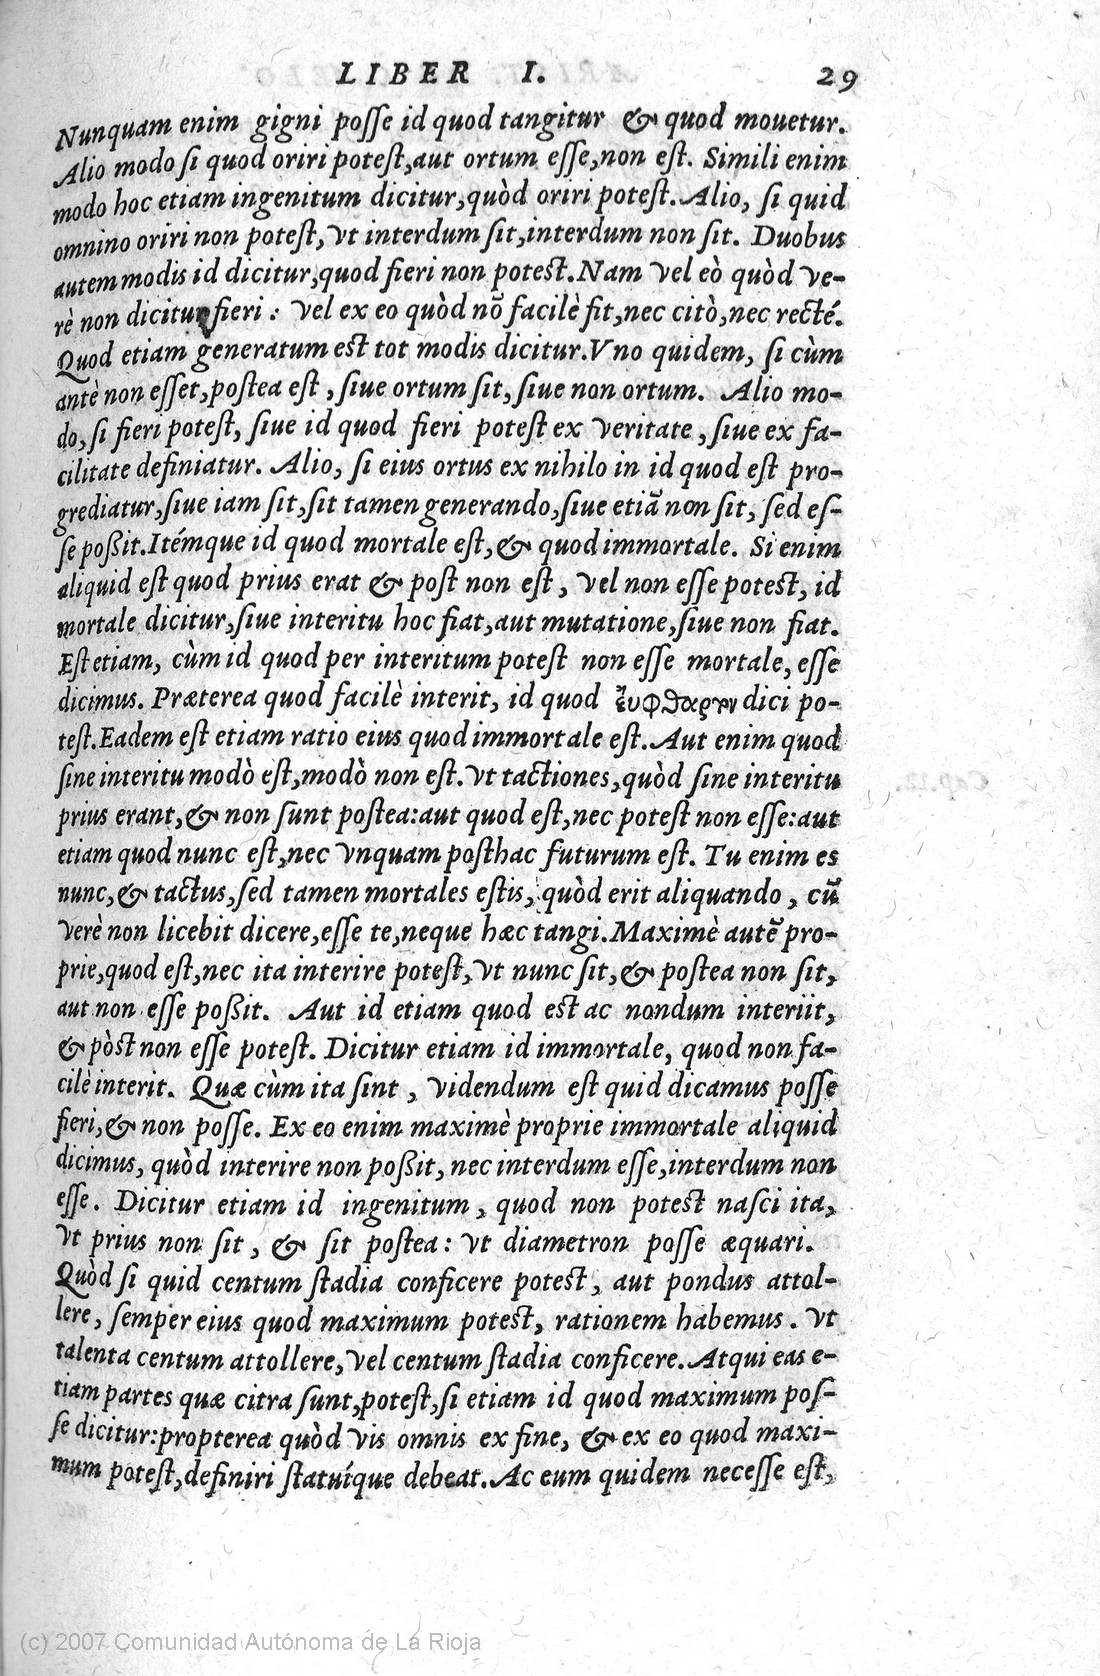 LIBER I. 29
Nunquam enim gigni posse id quod tangitur & quod mouetur.
Alio modo si quod oriri potest,aut ortum esse,non est. Simili enim
modo hoc etiam ingenitum dicitur,quòd oriri potest. Alio, si quid
omnino oriri non potest, vt interdum sit,interdum non sit. Duobus
autem modis id dicitur,quod fieri non potest. Nam vel eò quòd ve-
rè non dicitur fieri : vel ex eo quòd nō facilè fit,nec citò,nec recté.
Quod etiam generatum est tot modis dicitur. Vno quidem, si cùm
antè non esset,postea est , siue ortum sit, siue non ortum. Alio mo-
do, si fieri potest, siue id quod fieri potest ex veritate , siue ex fa-
cilitate definiatur. Alio, si eius ortus ex nihilo in id quod est pro-
grediatur,siue iam sit,sit tamen generando,siue etiā non sit, sed es-
se poßit. Itémque id quod mortale est,& quod immortale. Si enim
aliquid est quod prius erat & post non est , vel non esse potest, id
mortale dicitur,siue interitu hoc fiat,aut mutatione,siue non fiat.
Est etiam, cùm id quod per interitum potest non esse mortale, esse
dicimus. Præterea quod facilè interit, id quod ἔυφθαρτον dici po-
test. Eadem est etiam ratio eius quod immortale est. Aut enim quod
sine interitu modò est,modò non est. vt tactiones,quòd sine interitu
prius erant,& non sunt postea:aut quod est,nec potest non esse:aut
etiam quod nunc est,nec vnquam posthac futurum est. Tu enim es
nunc,& tactus,sed tamen mortales estis, quòd erit aliquando , cū
verè non licebit dicere,esse te,neque hæc tangi. Maximè autē pro-
prie,quod est,nec ita interire potest, vt nunc sit,& postea non sit,
aut non esse poßit. Aut id etiam quod est ac nondum interiit,
& pòst non esse potest. Dicitur etiam id immortale, quod non fa-
cilè interit. Quæ cùm ita sint , videndum est quid dicamus posse
fieri,& non posse. Ex eo enim maximè proprie immortale aliquid
dicimus, quòd interire non poßit, nec interdum esse,interdum non
esse. Dicitur etiam id ingenitum , quod non potest nasci ita,
vt prius non sit , & sit postea : vt diametron posse æquari.
Quòd si quid centum stadia conficere potest , aut pondus attol-
lere, semper eius quod maximum potest, rationem habemus. vt
talenta centum attollere, vel centum stadia conficere. Atqui eas e-
tiam partes quæ citra sunt,potest,si etiam id quod maximum pos-
se dicitur:propterea quòd vis omnis ex fine, & ex eo quod maxi-
mum potest,definiri statuíque debeat. Ac eum quidem necesse est,
(c) 2007 Comunidad Autónoma de La Rioja